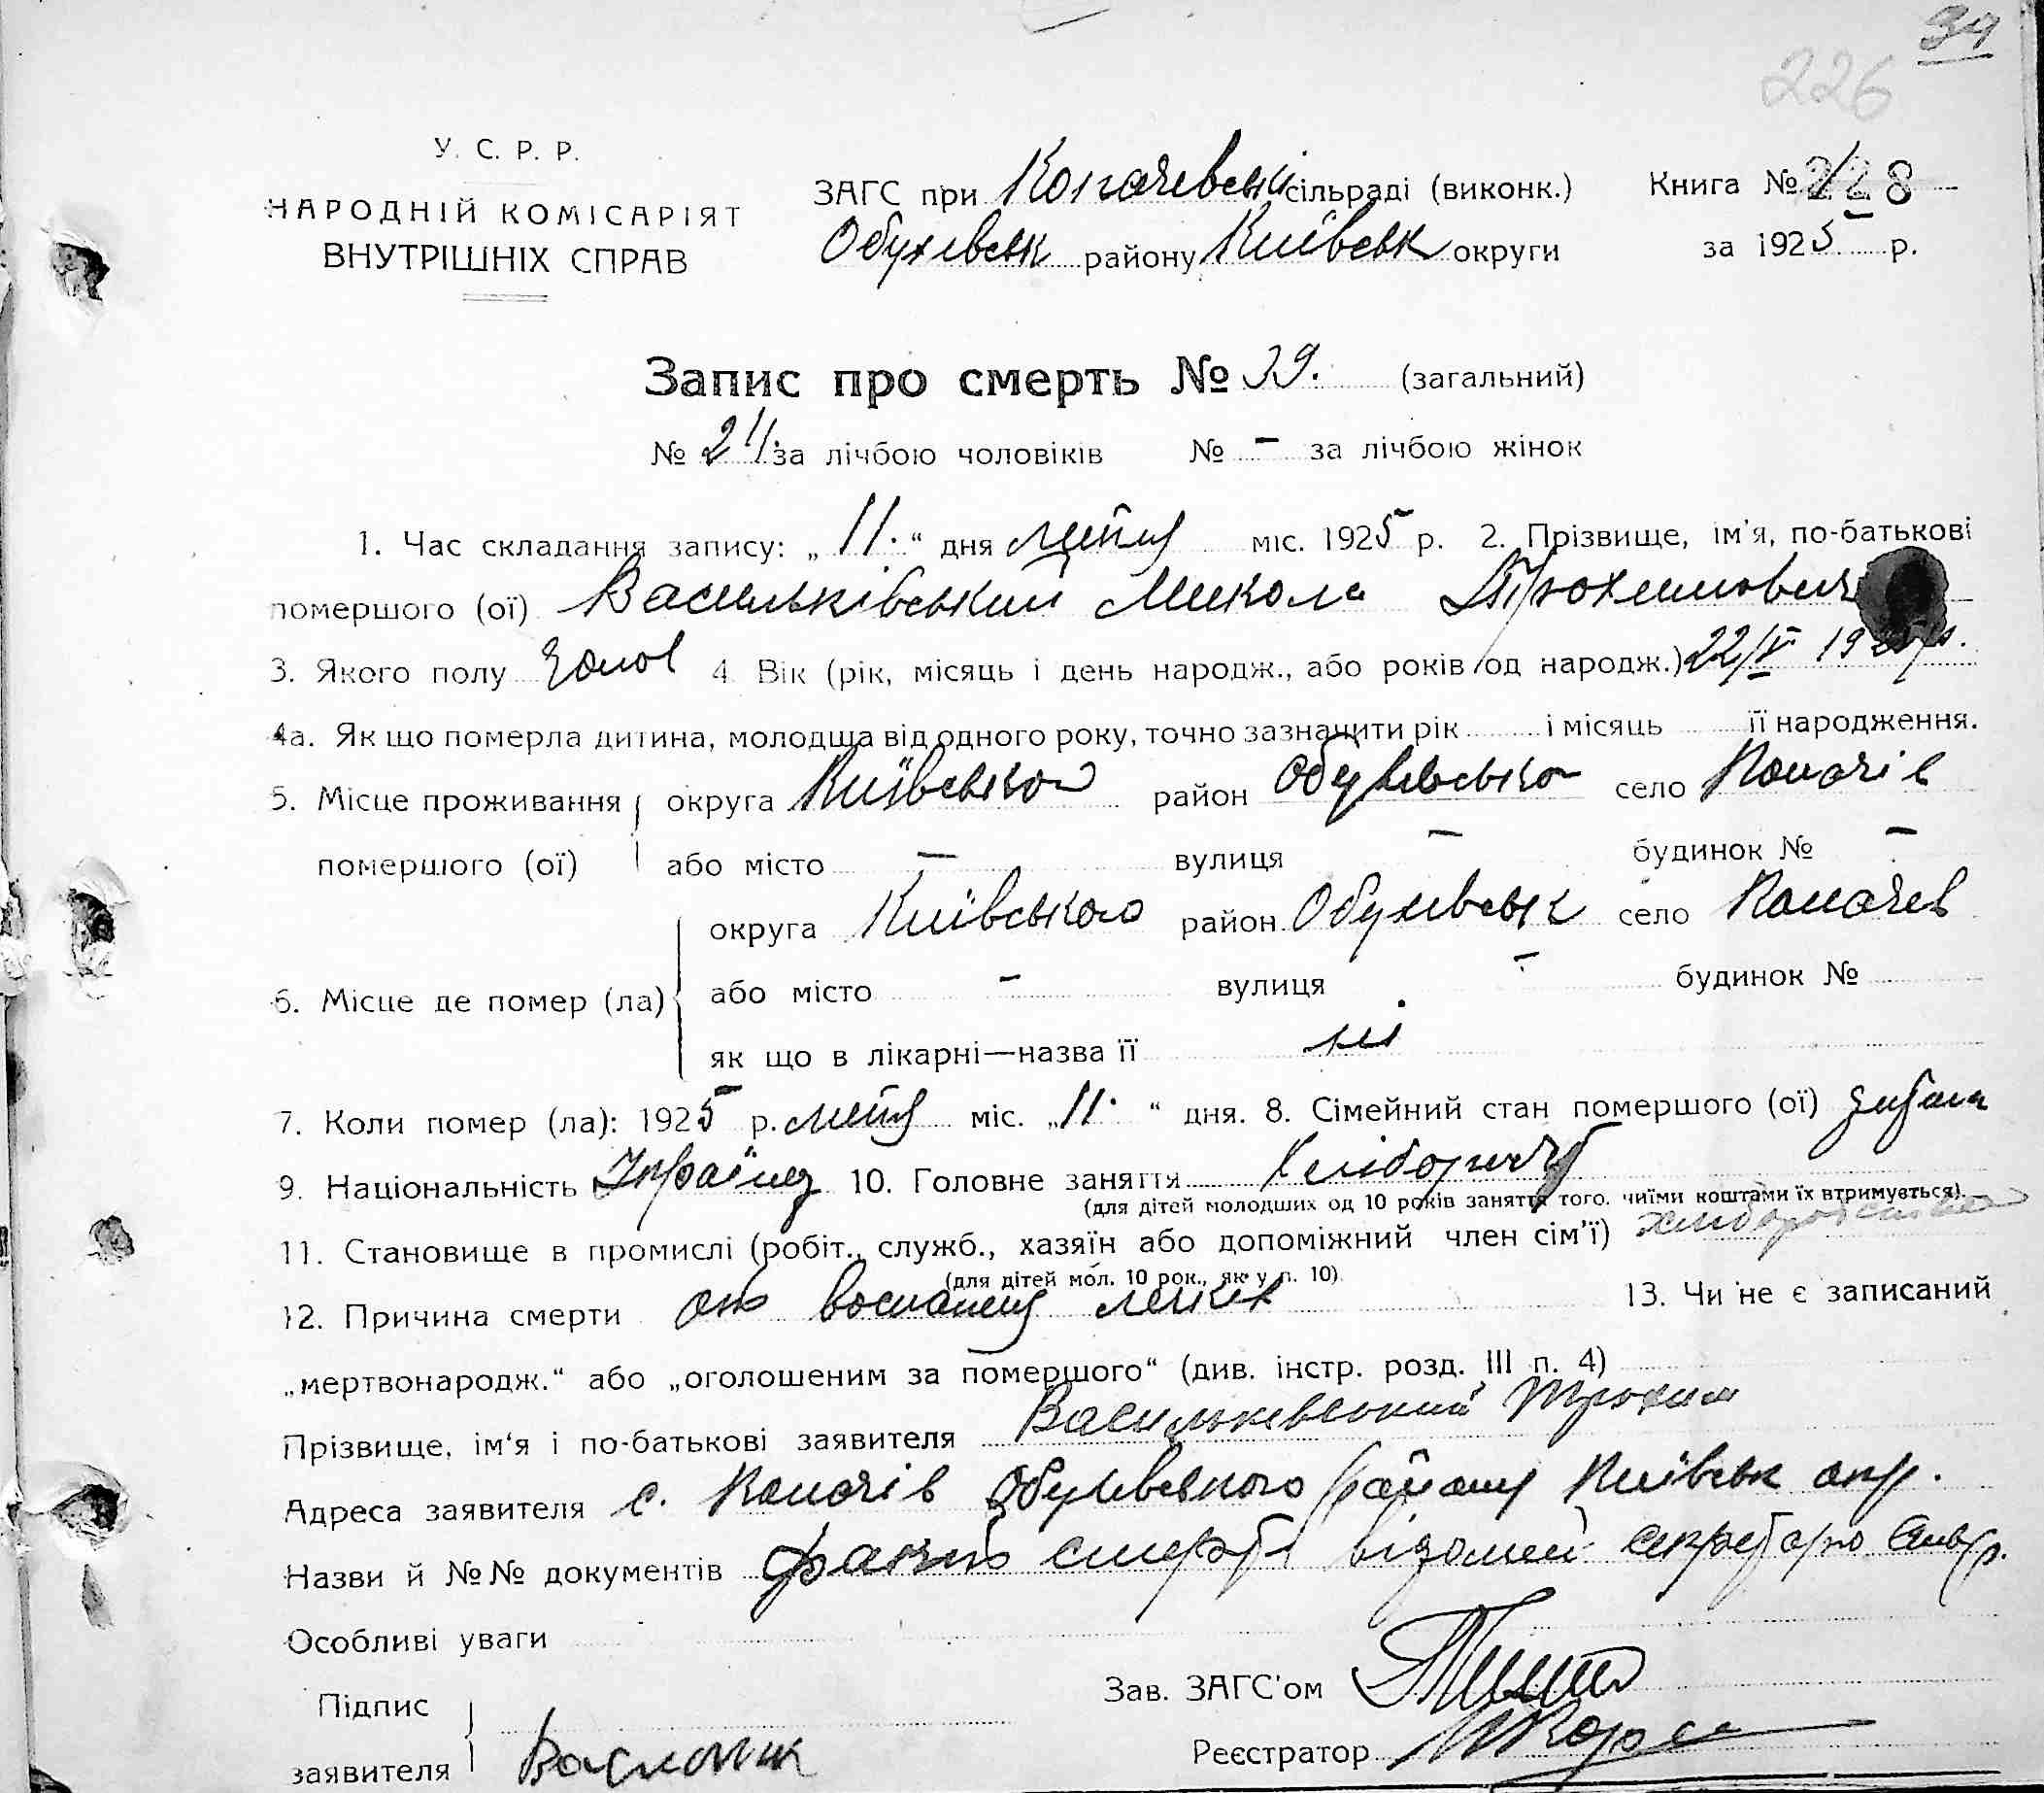 34
226
У. С. Р. Р.
НАРОДНІЙ КОМІСАРІЯТ
ВНУТРІШНІХ СПРАВ
ЗАГС при Копачевськ сільраді (виконк.) Книга № 228
Обухівськ району Київськ округи за 1925 р.
Запис про смерть № 39. (загальний)
№ 21. за лічбою чоловіків № – за лічбою жінок
1. Час складання запису: „11.“ дня міс. 1925 р. 2. Прізвище, ім'я, по-батькові
помершого (ої) Васильківський Микола Трохимович
3. Якого полу Чолов 4. Вік (рік, місяць і день народж., або років од народж.) 22/V 19
4а. Як що померла дитина, молодша від одного року, точно зазначити рік і місяць її народження.
5. Місце проживання округа Київського район Обухівсько село Копачів
помершого (ої) або місто – вулиця – будинок № –
округа Київського район Обухивськ село Копачев
6. Місце де помер (ла) або місто – вулиця – будинок №
як що в лікарні—назва її ні
7. Коли помер (ла): 1925 р. міс. „11.“ дня. 8. Сімейний стан помершого (ої)
9. Національність Українц 10. Головне заняття Хліборобч
(для дітей молодших од 10 років заняття того, чиїми коштами їх втримується).
11. Становище в промислі (робіт., служб., хазяїн або допоміжний член сім'ї)
(для дітей мол. 10 рок., як у п. 10)
12. Причина смерти от воспаления легких 13. Чи не є записаний
„мертвонародж.“ або „оголошеним за помершого“ (див. інстр. розд. III п. 4)
Прізвище, ім'я і по-батькові заявителя Васильківський Трохим
Адреса заявителя с. Копачів Обухівського району Київськ окр.
Назви й №№ документів факт смерті відомий секретарю сільр.
Особливі уваги
Підпис
заявителя
Зав. ЗАГС'ом
Реєстратор